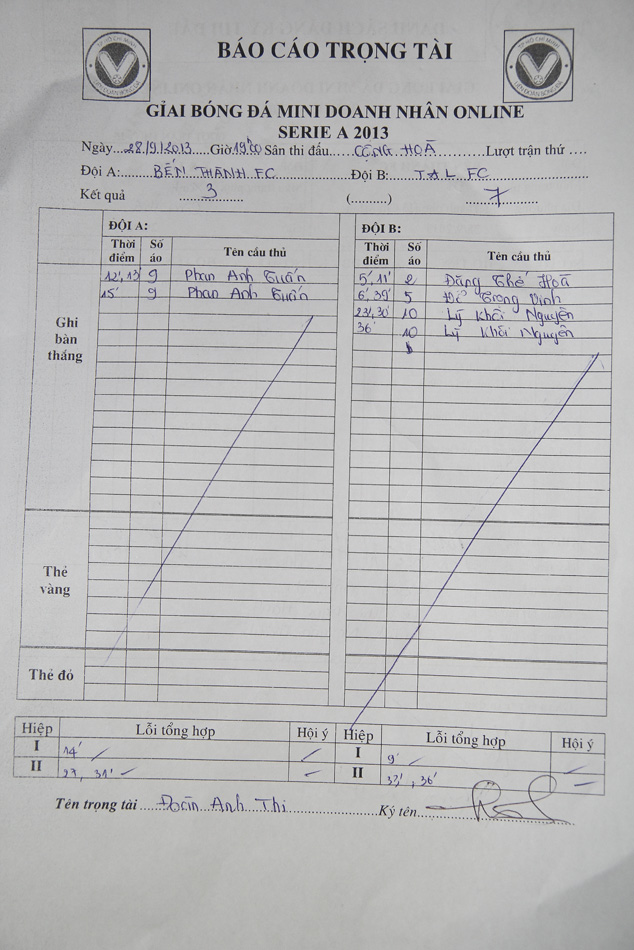 BÁO CÁO TRỌNG TÀI
GIẢI BÓNG ĐÁ MINI DOANH NHÂN ONLINE
SERIE A 2013
Ngày 28/9/2013 Giờ 19h00 Sân thi đấu CỘNG HOÀ Lượt trận thứ ....
Đội A: BẾN THÀNH FC Đội B: TAL FC
Kết quả 3 (..........) 7
ĐỘI A: ĐỘI B:
Thời điểm Số áo Tên cầu thủ Thời điểm Số áo Tên cầu thủ
Ghi bàn thắng
12', 13' 9 Phan Anh Tuấn 5', 11' 2 Đặng Thế Hoà
15' 9 Phan Anh Tuấn 6', 39' 5 Đỗ Trọng Vinh
23', 30' 10 Lý Khôi Nguyên
36' 10 Lý Khôi Nguyên
Thẻ vàng
Thẻ đỏ
Hiệp Lỗi tổng hợp Hội ý Hiệp Lỗi tổng hợp Hội ý
I 14' I 9'
II 27, 31' II 33', 36'
Tên trọng tài Đoàn Anh Thi Ký tên